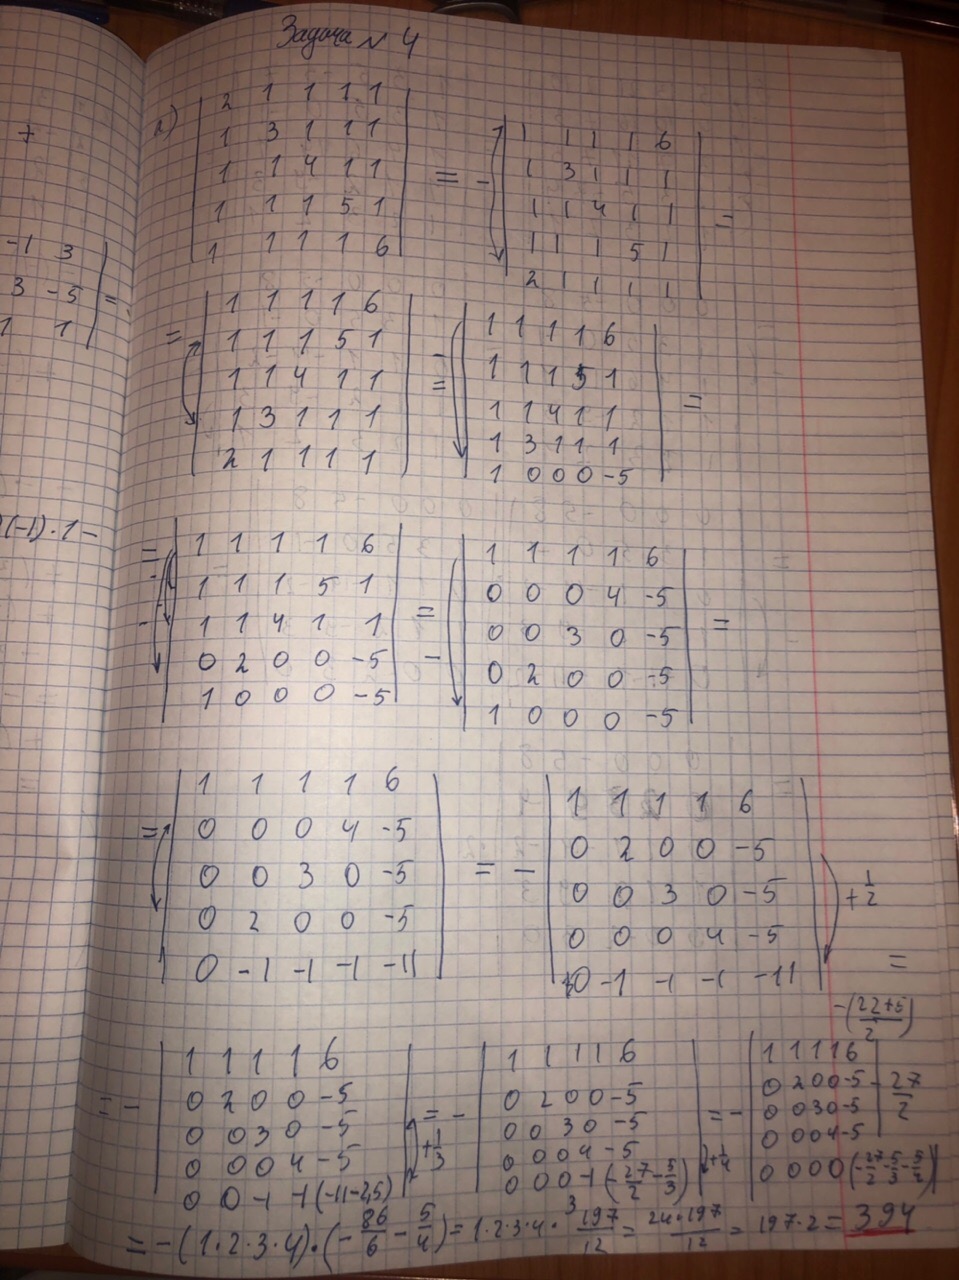 Задача № 4
а) | 2 1 1 1 1 |
| 1 3 1 1 1 |
| 1 1 4 1 1 | = -
| 1 1 1 5 1 |
| 1 1 1 1 6 |
| 1 1 1 1 6 |
| 1 3 1 1 1 |
| 1 1 4 1 1 | =
| 1 1 1 5 1 |
| 2 1 1 1 1 |
= | 1 1 1 1 6 |
| 1 1 1 5 1 |
| 1 1 4 1 1 | =
| 1 3 1 1 1 |
| 2 1 1 1 1 |
- | 1 1 1 1 6 |
| 1 1 1 5 1 |
| 1 1 4 1 1 | =
| 1 3 1 1 1 |
| 1 0 0 0 -5 |
= | 1 1 1 1 6 |
| 1 1 1 5 1 |
| 1 1 4 1 1 | =
| 0 2 0 0 -5 |
| 1 0 0 0 -5 |
| 1 1 1 1 6 |
| 0 0 0 4 -5 |
| 0 0 3 0 -5 | =
- | 0 2 0 0 -5 |
| 1 0 0 0 -5 |
| 1 1 1 1 6 |
= | 0 0 0 4 -5 |
| 0 0 3 0 -5 | = -
| 0 2 0 0 -5 |
| 0 -1 -1 -1 -11 |
| 1 1 1 1 6 |
| 0 2 0 0 -5 |
| 0 0 3 0 -5 | +1/2
| 0 0 0 4 -5 |
| 0 -1 -1 -1 -11 | =
-(22+5)/2
| 1 1 1 1 6 |
= - | 0 2 0 0 -5 | = -
| 0 0 3 0 -5 | +1/3
| 0 0 0 4 -5 |
| 0 0 -1 -1 (-11-2,5) |
| 1 1 1 1 6 |
| 0 2 0 0 -5 | = -
| 0 0 3 0 -5 |
| 0 0 0 4 -5 | +1/4
| 0 0 0 -1 (-27/2 - 5/3) |
| 1 1 1 1 6 |
| 0 2 0 0 -5 | 27/2
| 0 0 3 0 -5 |
| 0 0 0 4 -5 |
| 0 0 0 0 (-27/2 - 5/3 - 5/4) |
= -(1·2·3·4)·(-86/6 - 5/4) = 1·2·3·4· 197/12 = 24·197/12 = 197·2 = 394
+
-1 3
3 -5 | =
1 1
(-1)·1 -